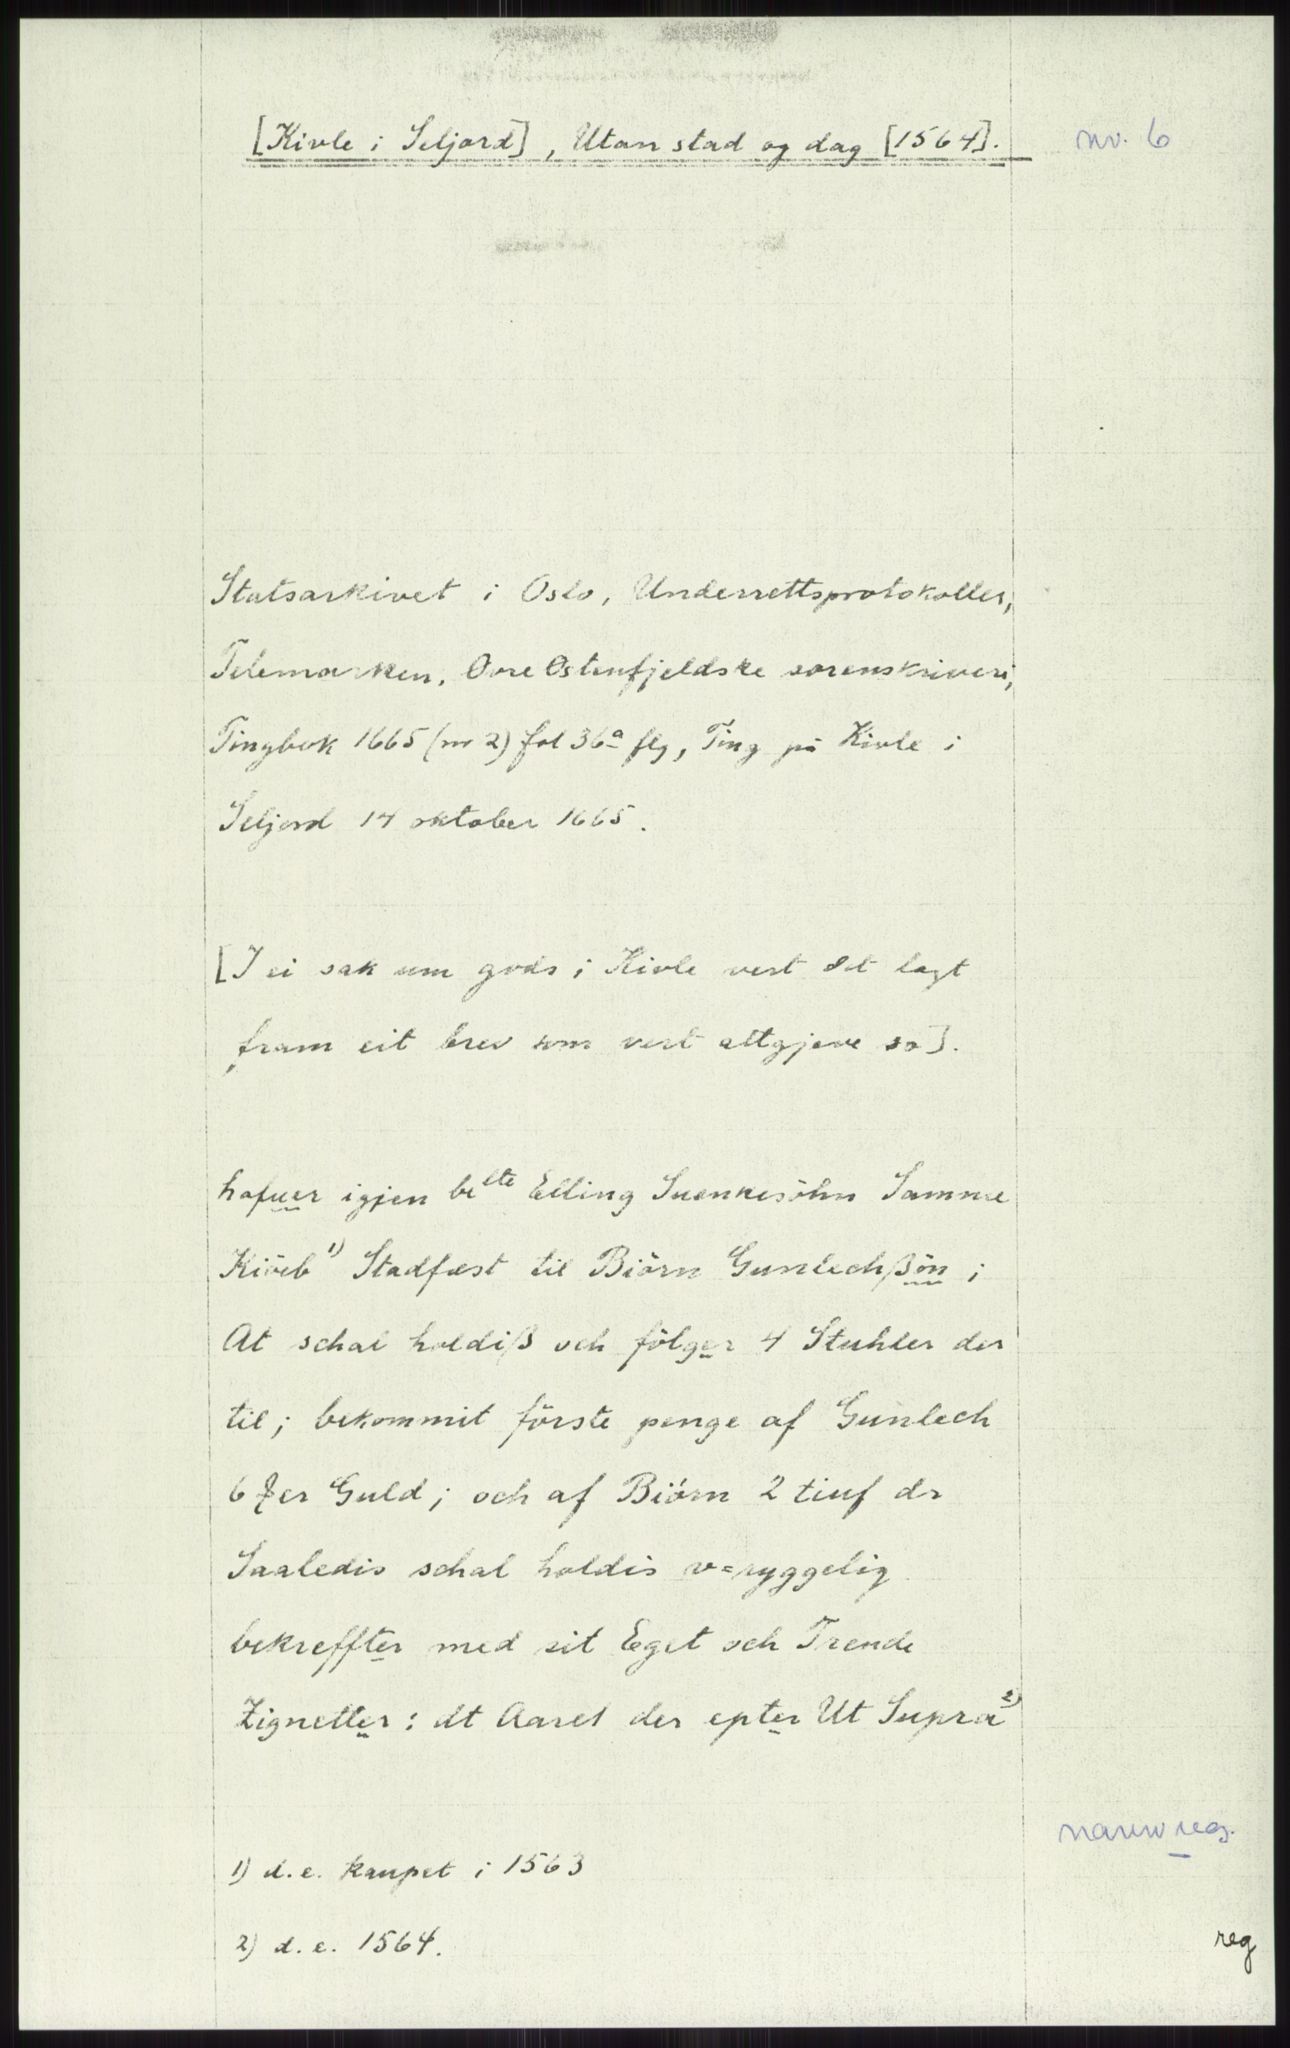 [Kivle i Seljord], Utan stad og dag [1564].
nr. 6
Statsarkivet i Oslo, Underrettsprotokoller,
Telemarken, Øvre Østenfjeldske sorenskriveri,
Tingbok 1665 (nr 2) fol 36a flg, Ting på Kivle i
Seljord 14 oktober 1665.
[I ei sak um gods i Kivle vert det lagt
fram eit brev som vert attgjeve so].
hafuer igjen belte Elling Suenkesöhn Samme
Kiöeb 1) Stadfæst til Biörn Gunlechßön ;
At schal holdiß och fölger 4 Stuhler der
til ; bekommit förste penge af Gunlech
6 er Guld ; och af Biörn 2 tiuf dr
Saaledis schal holdis v=ryggelig
bekreffter med sit Eget och Trende
Zignetter : dt Aaret der epter Ut Supra 2)
1) d.e. kaupet i 1563
2) d.e. 1564.
navnreg.
reg